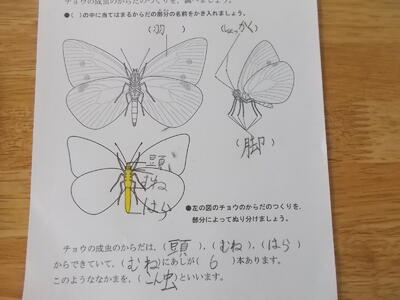 チョウの成虫のからだのつくりを、調べましょう。
●( )の中に当てはまるからだの部分の名前をかき入れましょう。
(羽) (しょっかく)
(脚)
頭
むね
はら
●左の図のチョウのからだのつくりを、
部分によってぬり分けましょう。
チョウの成虫のからだは、(頭)、(むね)、(はら)
からできていて、(むね)にあしが(6)本あります。
このようななかまを、(こん虫)といいます。